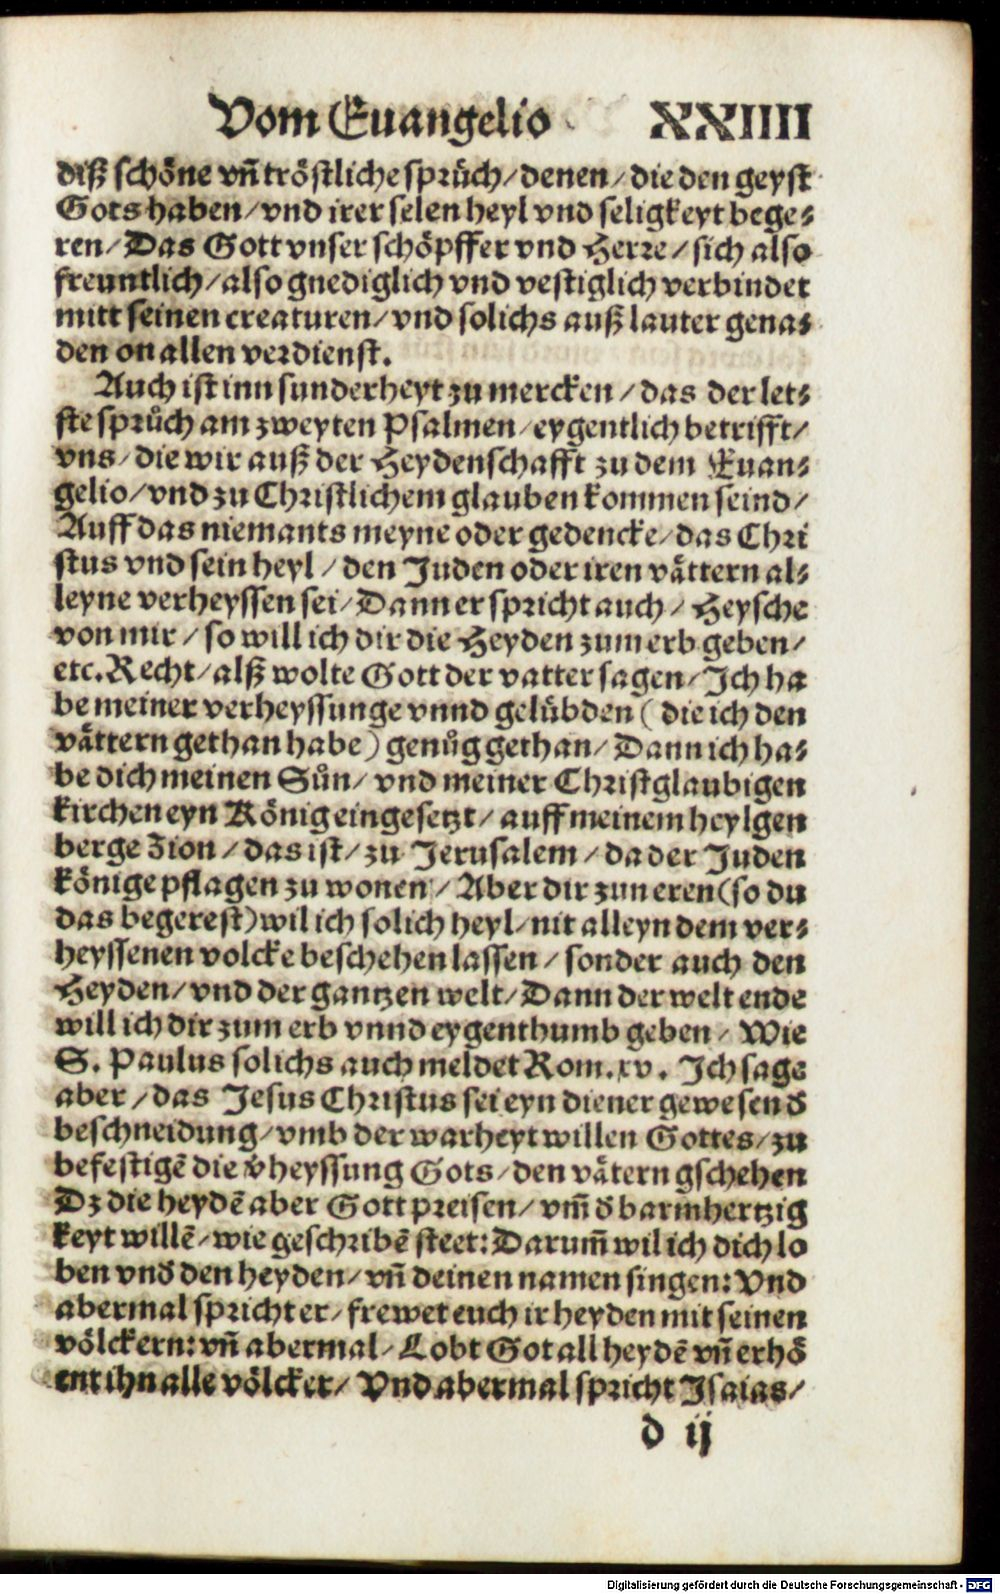 Vom Euangelio XXIIII
diß schöne vñ tröstliche sprüch/denen/die den geyst
Gots haben/vnd irer selen heyl vnd seligkeyt bege⸗
ren/Das Gott vnser schöpffer vnd Herre/sich also
freuntlich/also gnediglich vnd vestiglich verbindet
mitt seinen creaturen/vnd solichs auß lauter gena⸗
den on allen verdienst.
Auch ist inn sunderheyt zu mercken/das der let⸗
ste sprůch am zweyten Psalmen/eygentlich betrifft/
vns/die wir auß der Heydenschafft zu dem Euan⸗
gelio/vnd zu Christlichem glauben kommen seind/
Auff das niemants meyne oder gedencke/das Chri
stus vnd sein heyl/den Juden oder iren vättern al⸗
leyne verheyssen sei/Dann er spricht auch/Heysche
von mir/so will ich dir die Heyden zum erb geben/
etc. Recht/alß wolte Gott der vatter sagen/Ich ha
be meiner verheyssunge vnnd gelübden (die ich den
vättern gethan habe) genůg gethan/Dann ich ha⸗
be dich meinen Sůn/vnd meiner Christglaubigen
kirchen eyn König eingesetzt/auff meinem heylgen
berge Zion/das ist/zu Jerusalem/da der Juden
könige pflagen zu wonen/Aber dir zun eren (so du
das begerest) wil ich solich heyl/nit alleyn dem ver⸗
heyssenen volcke beschehen lassen/sonder auch den
Heyden/vnd der gantzen welt/Dann der welt ende
will ich dir zum erb vnnd eygenthumb geben/Wie
S. Paulus solichs auch meldet Rom. xv. Ich sage
aber/das Jesus Christus sei eyn diener gewesen d̄
beschneidung/vmb der warheyt willen Gottes/zu
befestigē die v̄heyssung Gots/den vätern gschehen
Dz die heydē aber Gott preisen/vm̄ d̄ barmhertzig
keyt willē/wie geschribē steet: Darum̄ wil ich dich lo
ben vnd̄ den heyden/vñ deinen namen singen: Vnd
abermal spricht er/frewet euch ir heyden mit seinen
völckern: vñ abermal/Lobt Got all heydē vñ erhö
ent ihn alle völcker/Vnd abermal spricht Isaias/
d ij
Digitalisierung gefördert durch die Deutsche Forschungsgemeinschaft - DFG